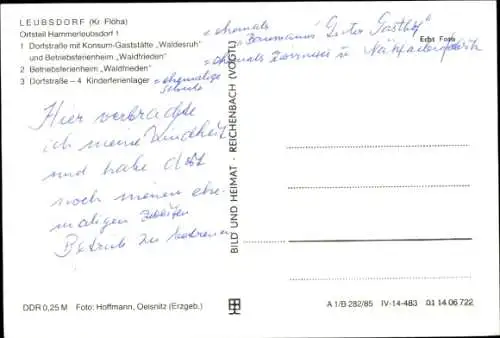 LEUBSDORF (Kr. Flöha)
Ortsteil Hammerleubsdorf 1
1 Dorfstraße mit Konsum-Gaststätte „Waldesruh"
und Betriebsferienheim „Waldfrieden"
2 Betriebsferienheim „Waldfrieden"
3 Dorfstraße – 4 Kinderferienlager
= ehemals
"Baumanns Gasthof"
= ehemals Zwirnerei u. Nähfadenfabrik
= ehemalige
Schule
Echt Foto
Hier verbrachte
ich meine Kindheit
und habe dort
noch meinen ehe-
maligen
Betrieb zu betreuen
BILD UND HEIMAT · REICHENBACH (VOGTL)
DDR 0,25 M Foto: Hoffmann, Oelsnitz (Erzgeb.)
A 1/B 282/85 IV-14-483 01 14 06 722